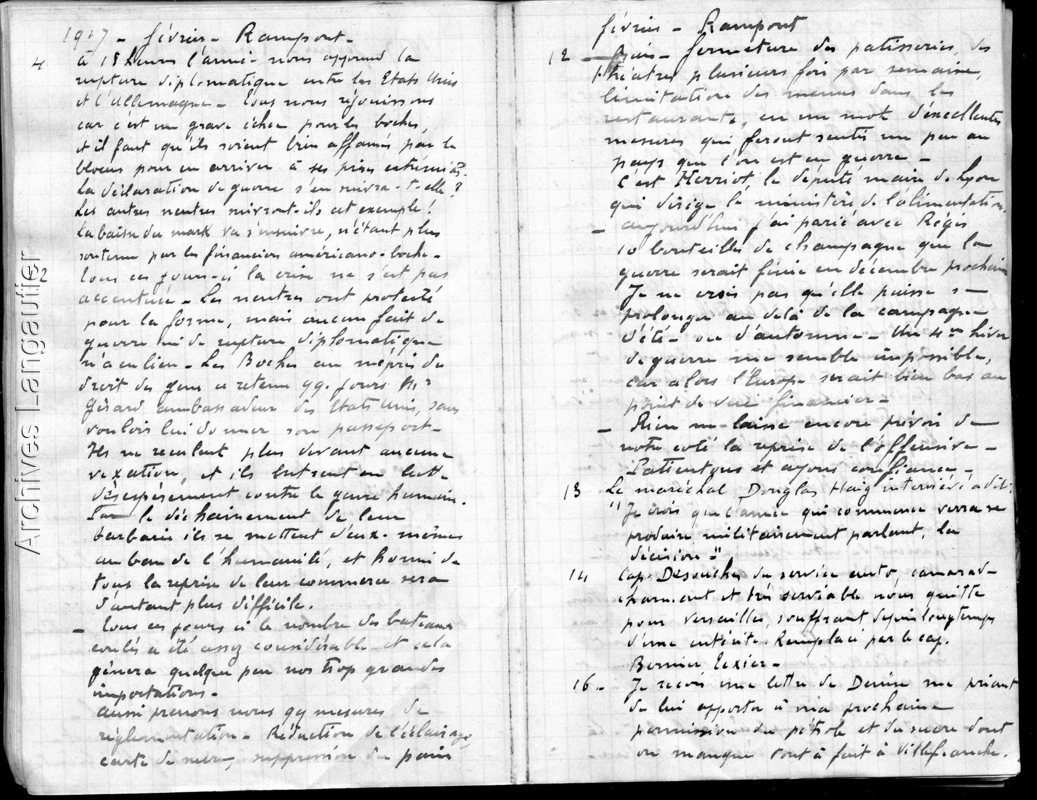 1917 - février - Rampont -
4 à 18 heures l'armée nous apprend la
rupture diplomatique entre les Etats Unis
et l'Allemagne - Tous nous réjouissons
car c'est un grave échec pour les boches,
et il faut qu'ils soient bien affamés par le
blocus pour en arriver à ses prises extrémités.
La déclaration de guerre s'en suivra-t-elle ?
Les autres neutres suivront-ils cet exemple !
La baisse du mark va s'ensuivre, n'étant plus
soutenu par les financiers américano-boche -
12 Tous ces jours-ci la crise ne s'est pas
accentuée - Les neutres ont protesté
pour la forme, mais aucun fait de
guerre ni de rupture diplomatique
n'a eu lieu - Les Boches au mépris du
droit des gens ont retenu qq. jours Mr
Gérard ambassadeur des Etats Unis, sans
vouloir lui donner son passeport -
Ils ne reculent plus devant aucune
vexation, et ils luttent
désespérément contre le genre humain.
Par le déchainement de leur
barbarie ils se mettent d'eux-mêmes
au ban de l'humanité, et honni de
tous la reprise de leur commerce sera
d'autant plus difficile.
- Tous ces jours ci le nombre des bateaux
coulés a été assez considérable et cela
gênera quelque peu nos trop grandes
importations -
aussi prenons nous qq mesures de
réglementation - Réduction de l'éclairage,
carte de sucre, suppression du pain
Archives Langautier
février - Rampont
12 - frais - fermeture des patisseries, des
théatres plusieurs fois par semaine,
limitation des menus dans les
restaurants, en un mot d'excellentes
mesures qui feront sentir un peu au
pays que l'on est en guerre -
C'est Herriot, le député maire de Lyon
qui dirige le ministère de l'alimentation.
- aujourd'hui j'ai parié avec Régis
10 bouteilles de champagne que la
guerre serait finie en décembre prochain
Je ne crois pas qu'elle puisse se
prolonger au delà de la campagne
d'été - ou d'automne - Un 4me hiver
de guerre me semble impossible,
car alors l'Europe serait bien bas au
point de vue financier -
- Rien ne laisse encore prévoir de
notre coté la reprise de l'offensive -
Patientons et ayons confiance -
13 Le maréchal Douglas Haig interviewé a dit:
"Je crois que l'année qui commence verra se
produire militairement parlant, la
décision"
14 Cap. Desouches du service auto, camarade
charmant et très serviable nous quitte
pour Versailles, souffrant depuis longtemps
d'une entérite - Remplacé par le cap.
Bernier Texier -
16 - Je reçois une lettre de Denise me priant
de lui apporter à ma prochaine
permission du pétrole et du sucre dont
on manque tout à fait à Villefranche.